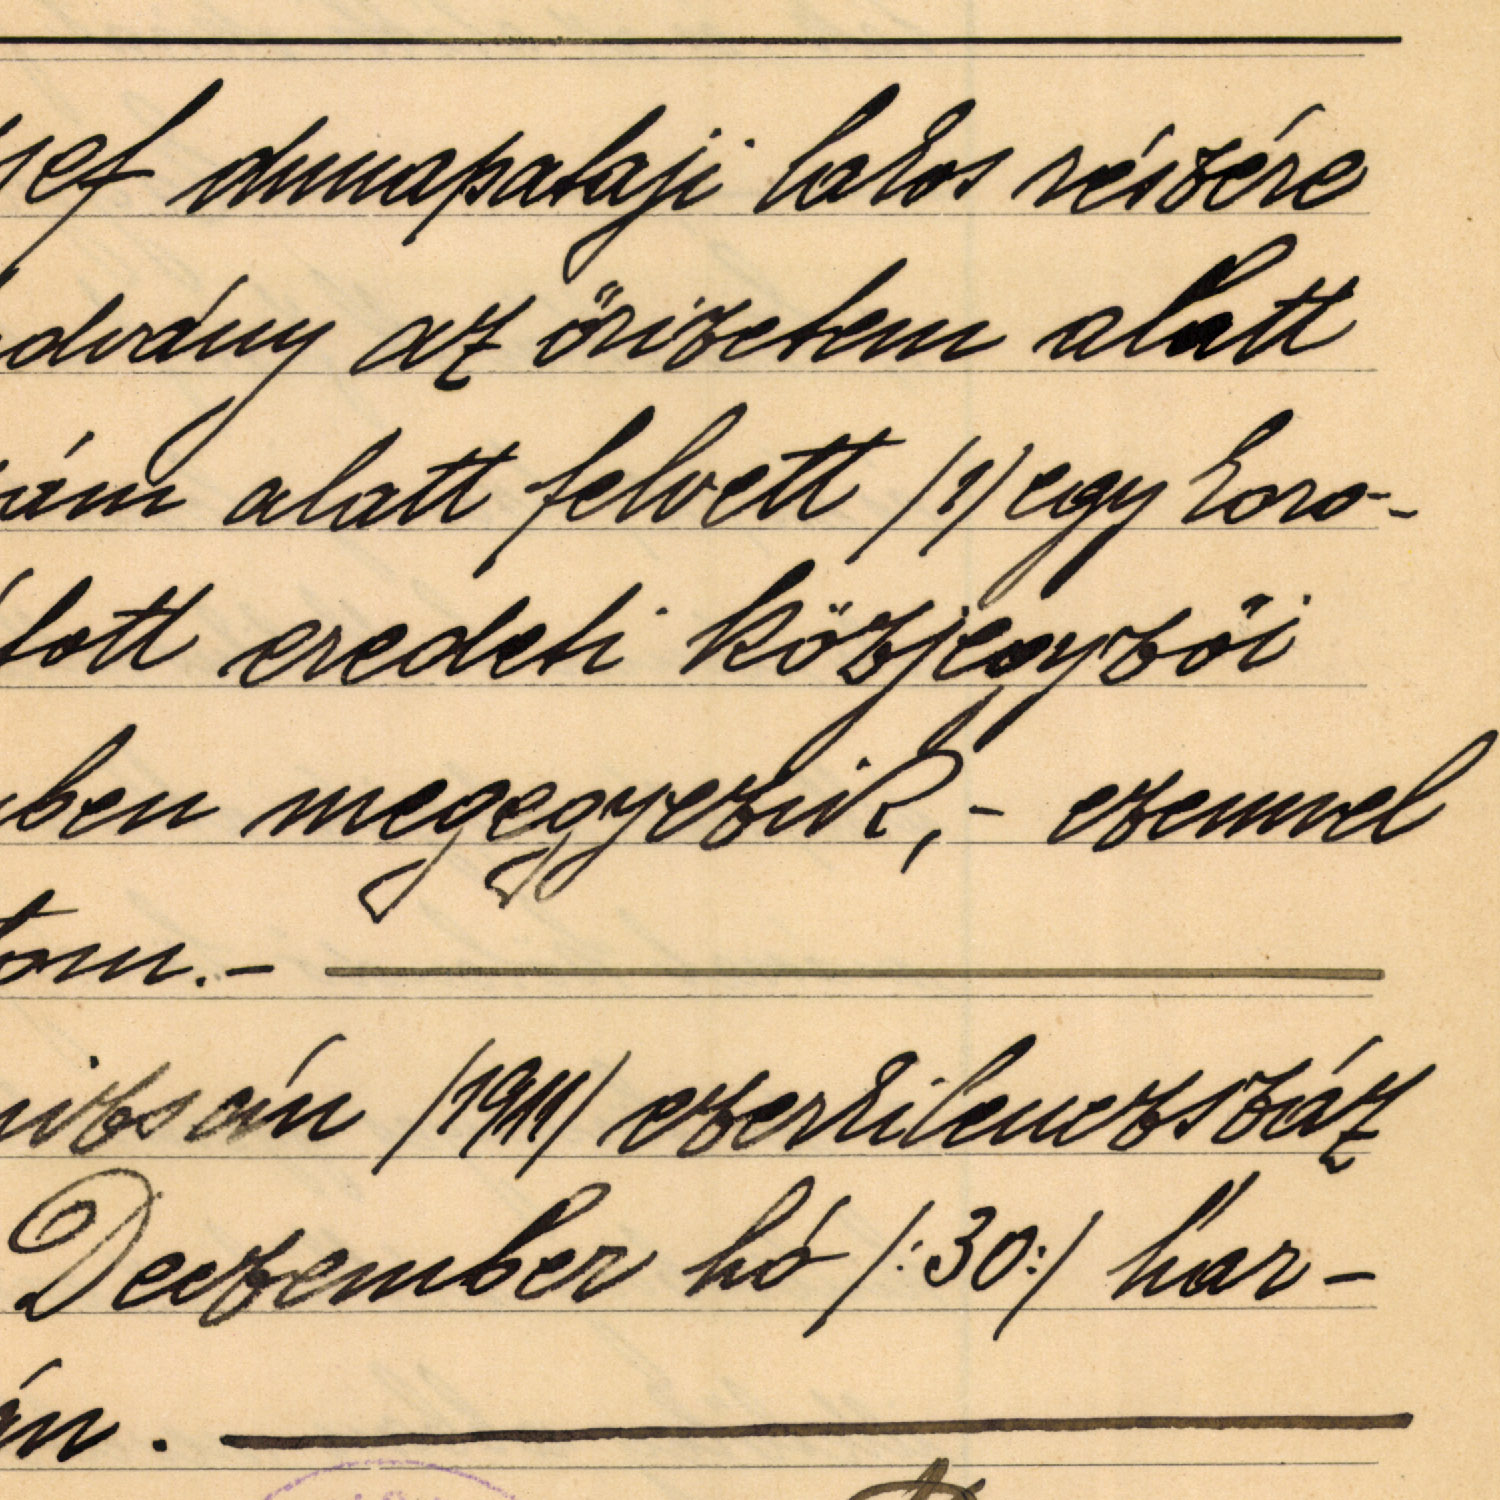 zsef dunapataji lakos részére
advány az őrizetem alatt
zám alatt felvett /1/ egy koro-
ított eredeti közjegyzői
ben megegyezik,- ezennel
tom.-
kizsán /1911/ ezerkilenczszáz
Deczember hó /:30:/ har-
án.